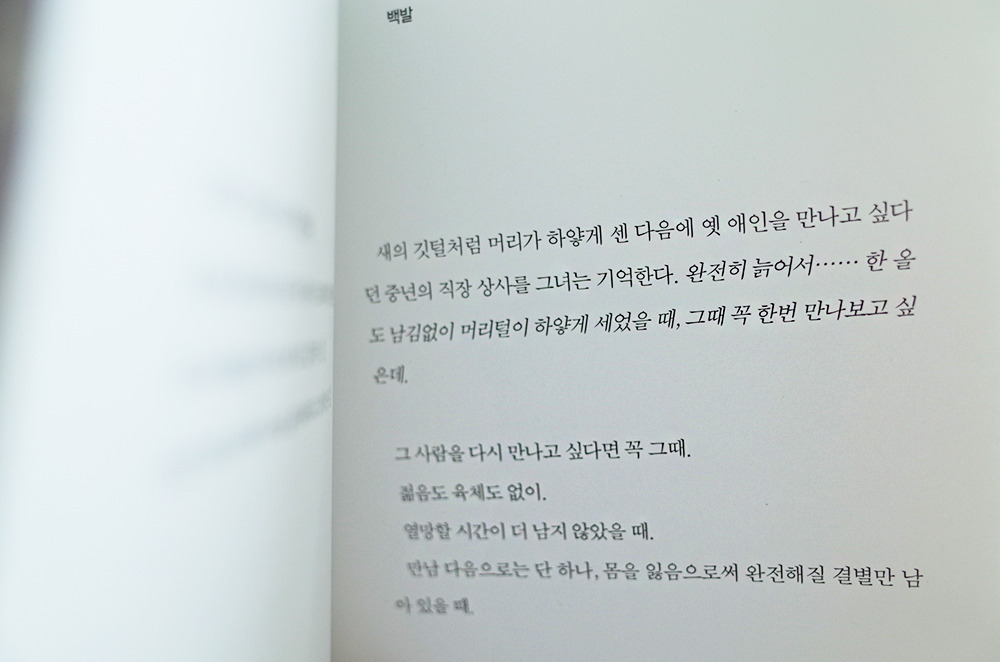 백발
새의 깃털처럼 머리가 하얗게 센 다음에 옛 애인을 만나고 싶다
던 중년의 직장 상사를 그녀는 기억한다. 완전히 늙어서…… 한 올
도 남김없이 머리털이 하얗게 세었을 때, 그때 꼭 한번 만나보고 싶
은데.
그 사람을 다시 만나고 싶다면 꼭 그때.
젊음도 육체도 없이.
열망할 시간이 더 남지 않았을 때.
만남 다음으로는 단 하나, 몸을 잃음으로써 완전해질 결별만 남
아 있을 때.